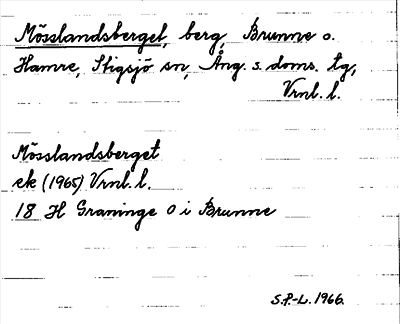 Mösslandsberget, berg, Brunne o.
Hamre, Stigsjö sn, Ång. s. doms. tg,
Vrnl. l.
Mösslandsberget
ek (1965) Vrnl. l.
18 H Graninge O i Brunne
S.P.-L. 1966.